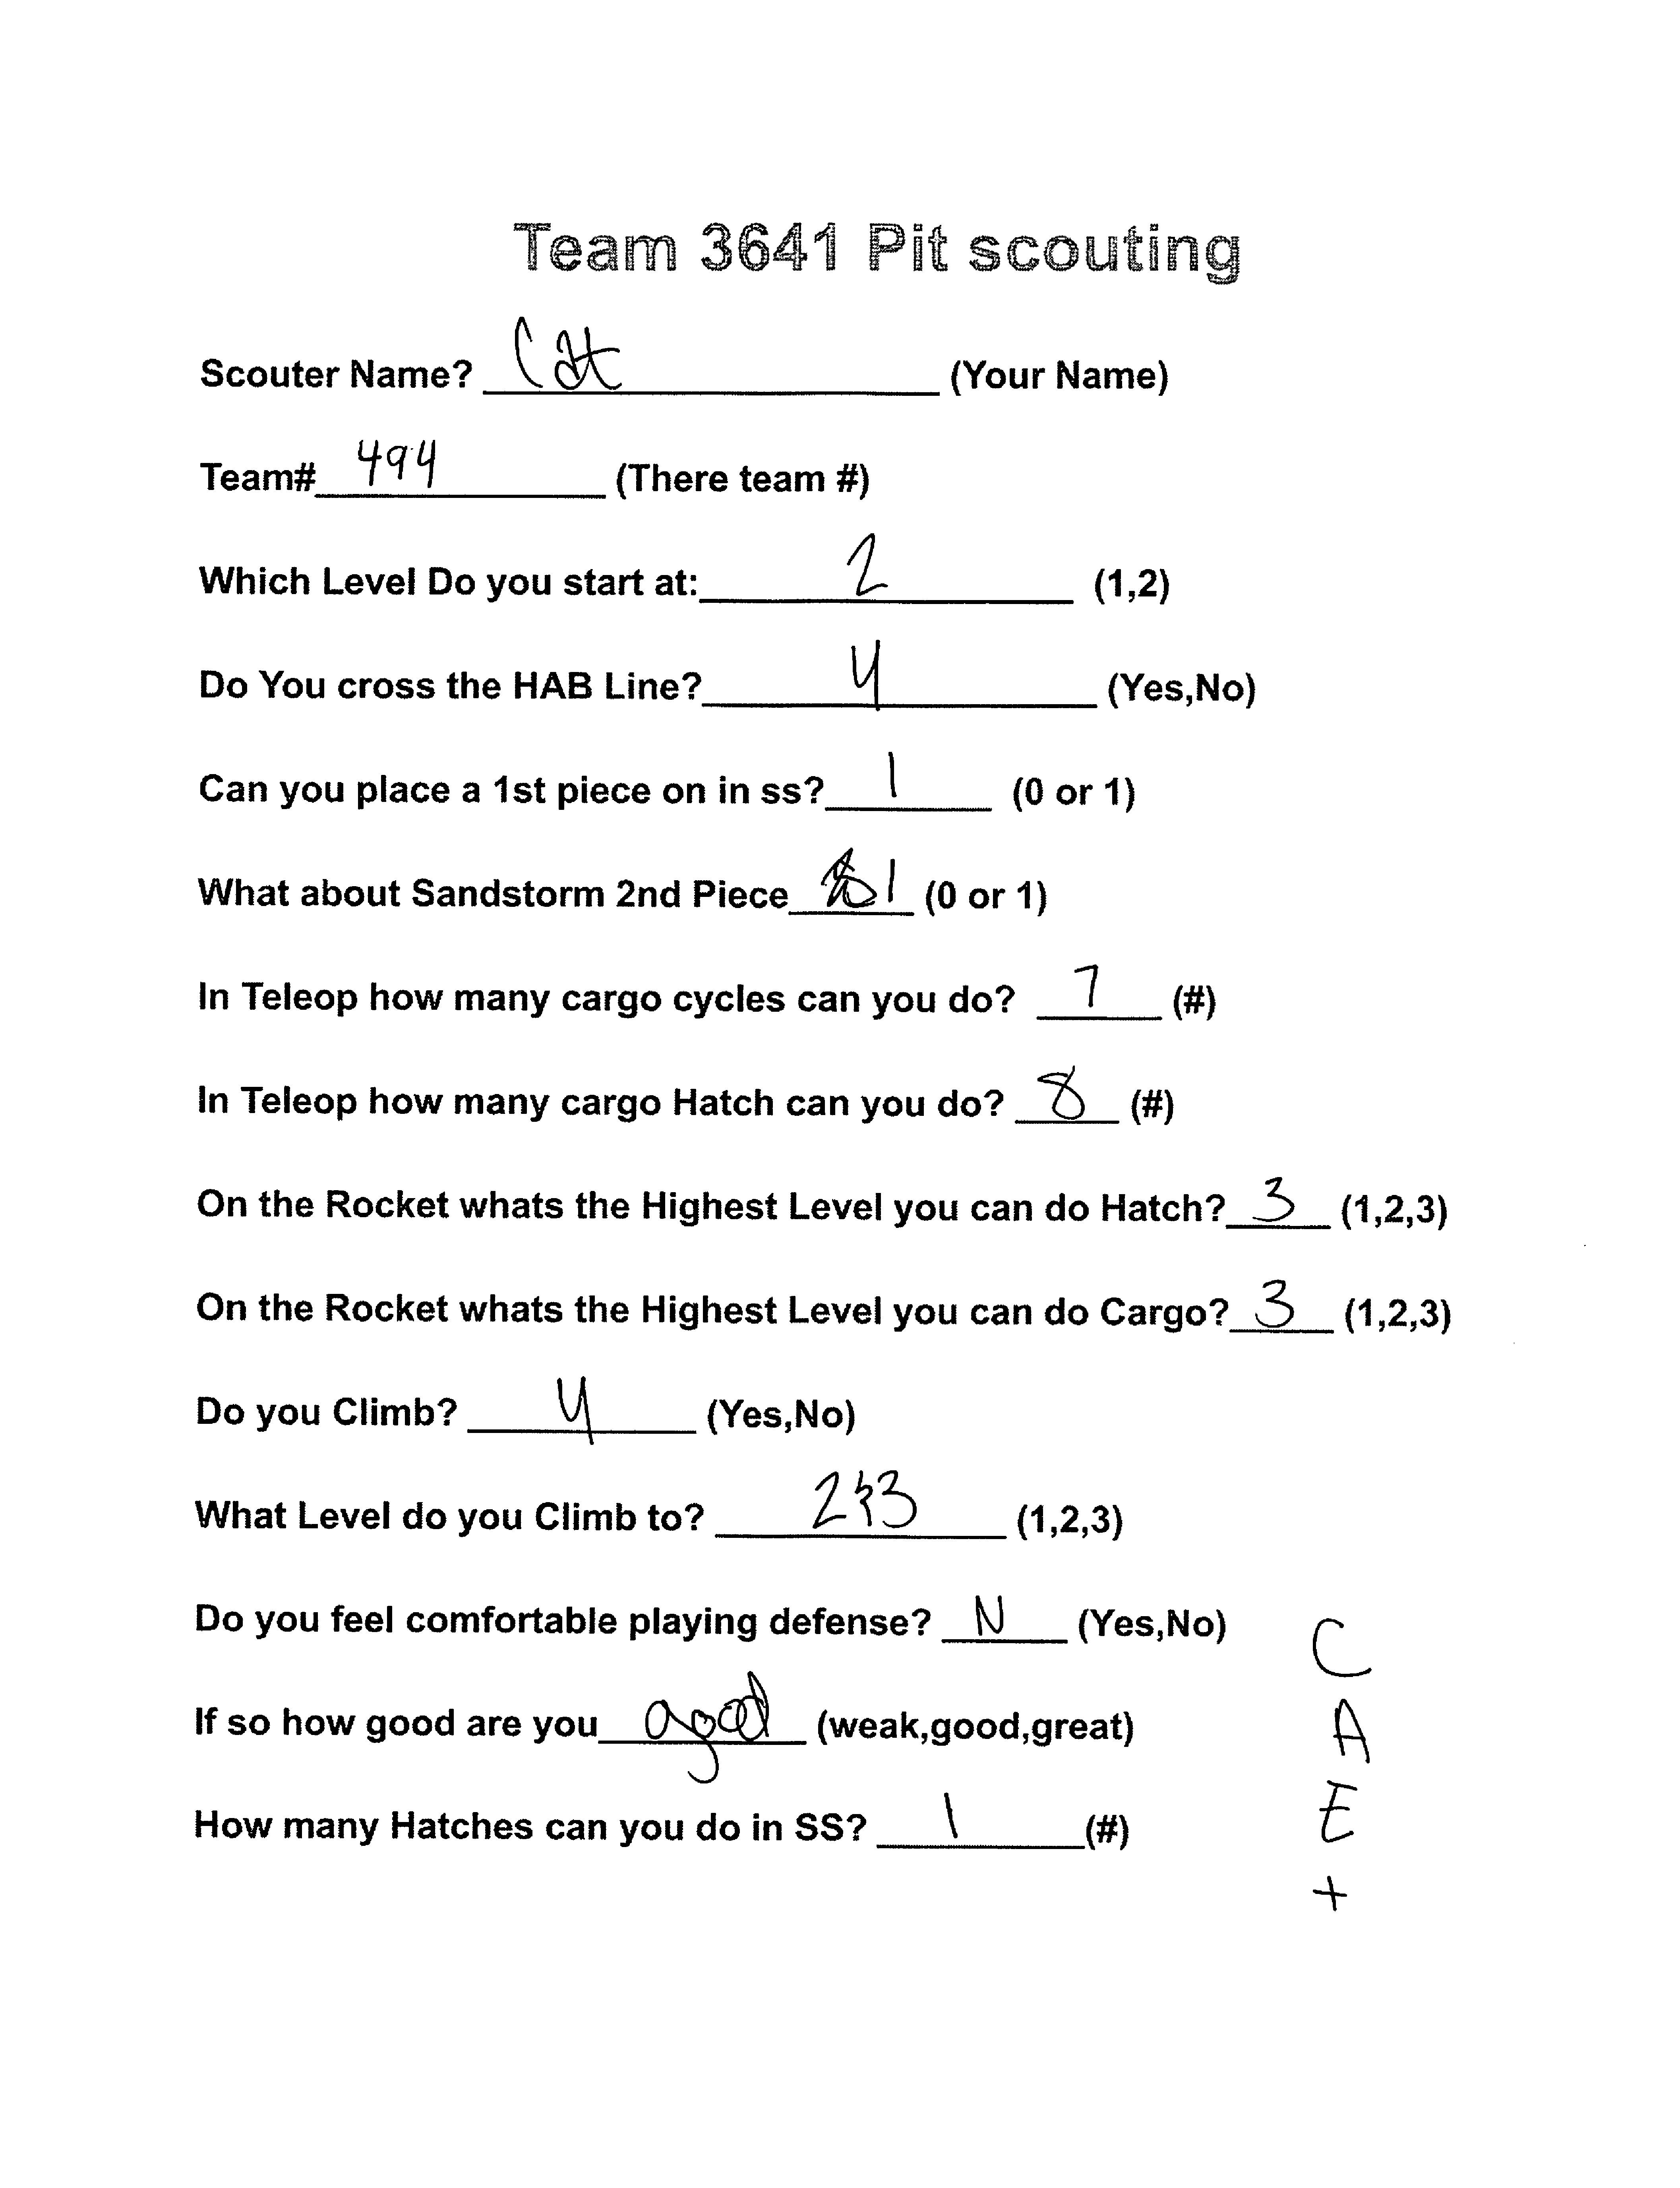 Team 3641 Pit scouting
Scouter Name? Cat (Your Name)
Team# 494 (There team #)
Which Level Do you start at: 2 (1,2)
Do You cross the HAB Line? y (Yes,No)
Can you place a 1st piece on in ss? 1 (0 or 1)
What about Sandstorm 2nd Piece 1 (0 or 1)
In Teleop how many cargo cycles can you do? 7 (#)
In Teleop how many cargo Hatch can you do? 8 (#)
On the Rocket whats the Highest Level you can do Hatch? 3 (1,2,3)
On the Rocket whats the Highest Level you can do Cargo? 3 (1,2,3)
Do you Climb? y (Yes,No)
What Level do you Climb to? 2&3 (1,2,3)
Do you feel comfortable playing defense? N (Yes,No)
If so how good are you good (weak,good,great)
How many Hatches can you do in SS? 1 (#)
C
A
E
+